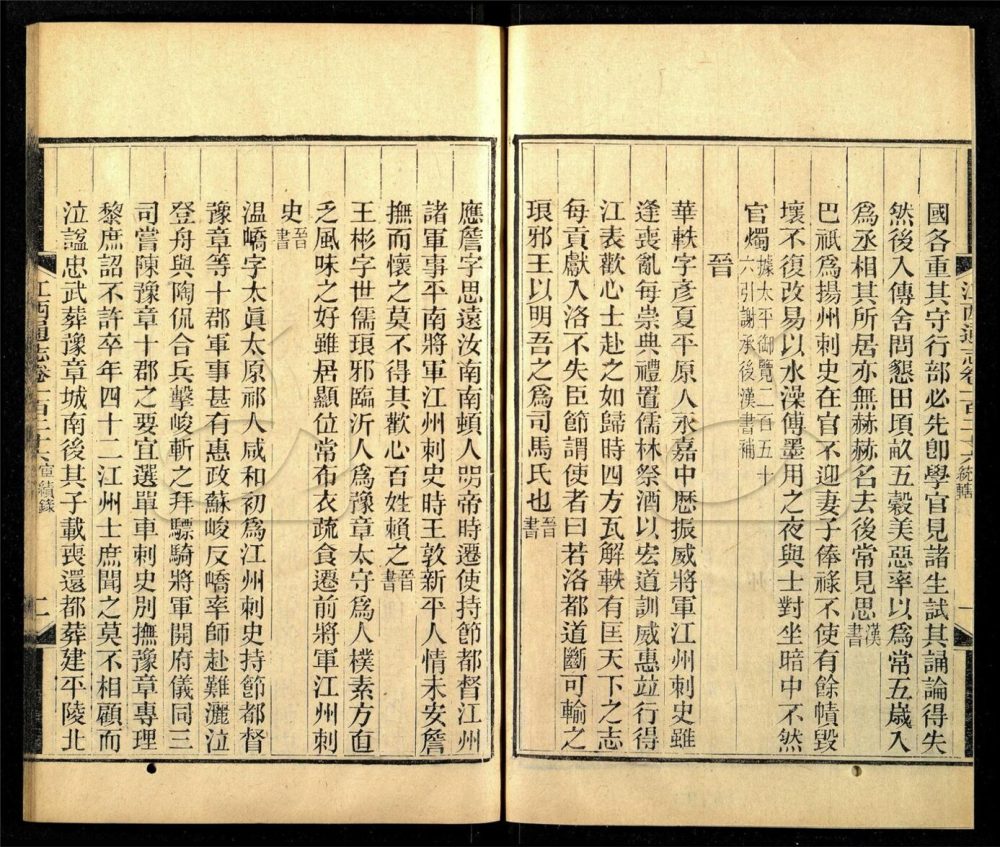 江西通志卷一百二十六 統轄
國各重其守行部必先卽學官見諸生試其誦論得失
然後入傳舍問懇田頃畝五穀美惡率以爲常五歲入
爲丞相其所居亦無赫赫名去後常見思漢書
巴祇爲揚州刺史在官不迎妻子俸祿不使有餘幘毀
壞不復改易以水澡傅墨用之夜與士對坐暗中不然
官燭據太平御覽二百五十六引謝承後漢書補
晉
華軼字彥夏平原人永嘉中歷振威將軍江州刺史雖
逢喪亂每崇典禮置儒林祭酒以宏道訓威惠竝行得
江表歡心士赴之如歸時四方瓦解軼有匡天下之志
每貢獻入洛不失臣節謂使者曰若洛都道斷可輸之
琅邪王以明吾之爲司馬氏也晉書
應詹字思遠汝南南頓人明帝時遷使持節都督江州
諸軍事平南將軍江州刺史時王敦新平人情未安詹
撫而懷之莫不得其歡心百姓賴之晉書
王彬字世儒琅邪臨沂人爲豫章太守爲人樸素方直
乏風味之好雖居顯位常布衣疏食遷前將軍江州刺
史晉書
溫嶠字太眞太原祁人咸和初爲江州刺史持節都督
豫章等十郡軍事甚有惠政蘇峻反嶠率師赴難灑泣
登舟與陶侃合兵擊峻斬之拜驃騎將軍開府儀同三
司嘗陳豫章十郡之要宜選單車刺史別撫豫章專理
黎庶詔不許卒年四十二江州士庶聞之莫不相顧而
泣諡忠武葬豫章城南後其子載喪還都葬建平陵北
江西通志卷一百二十六 宦績錄 二